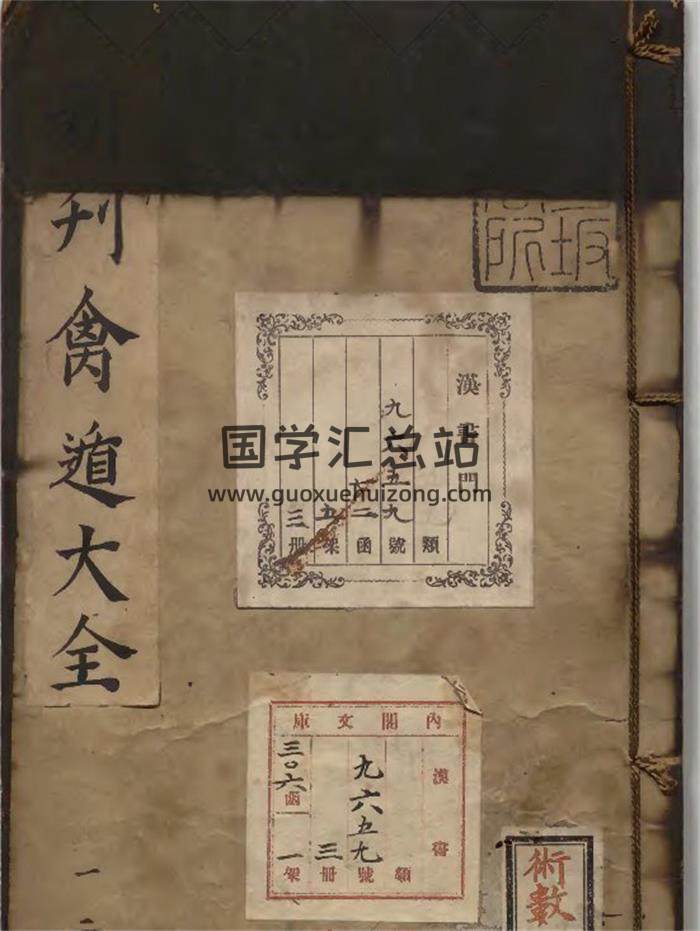 刊禽遁大全
一二
漢書門
類
九六五九號
六二函
五架
三册
国学汇总站
www.guoxuehuizong.com
內閣文庫
漢書
類
九六五九號
三册
三〇六函
一架
術數